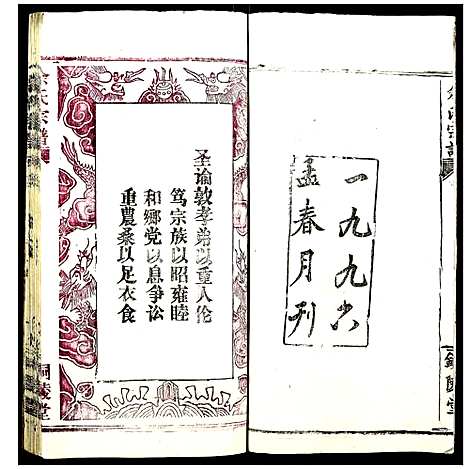 一九九六
孟春月刊
圣谕敦孝弟以重人伦
笃宗族以昭雍睦
和乡党以息争讼
重農桑以足衣食
氏宗譜
銅陵堂